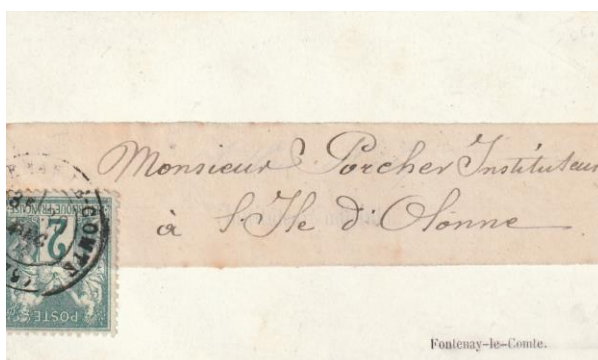 Monsieur Porcher Instituteur
à l'Ile d'Olonne
COMTE
2
POSTES
Fontenay-le-Comte.